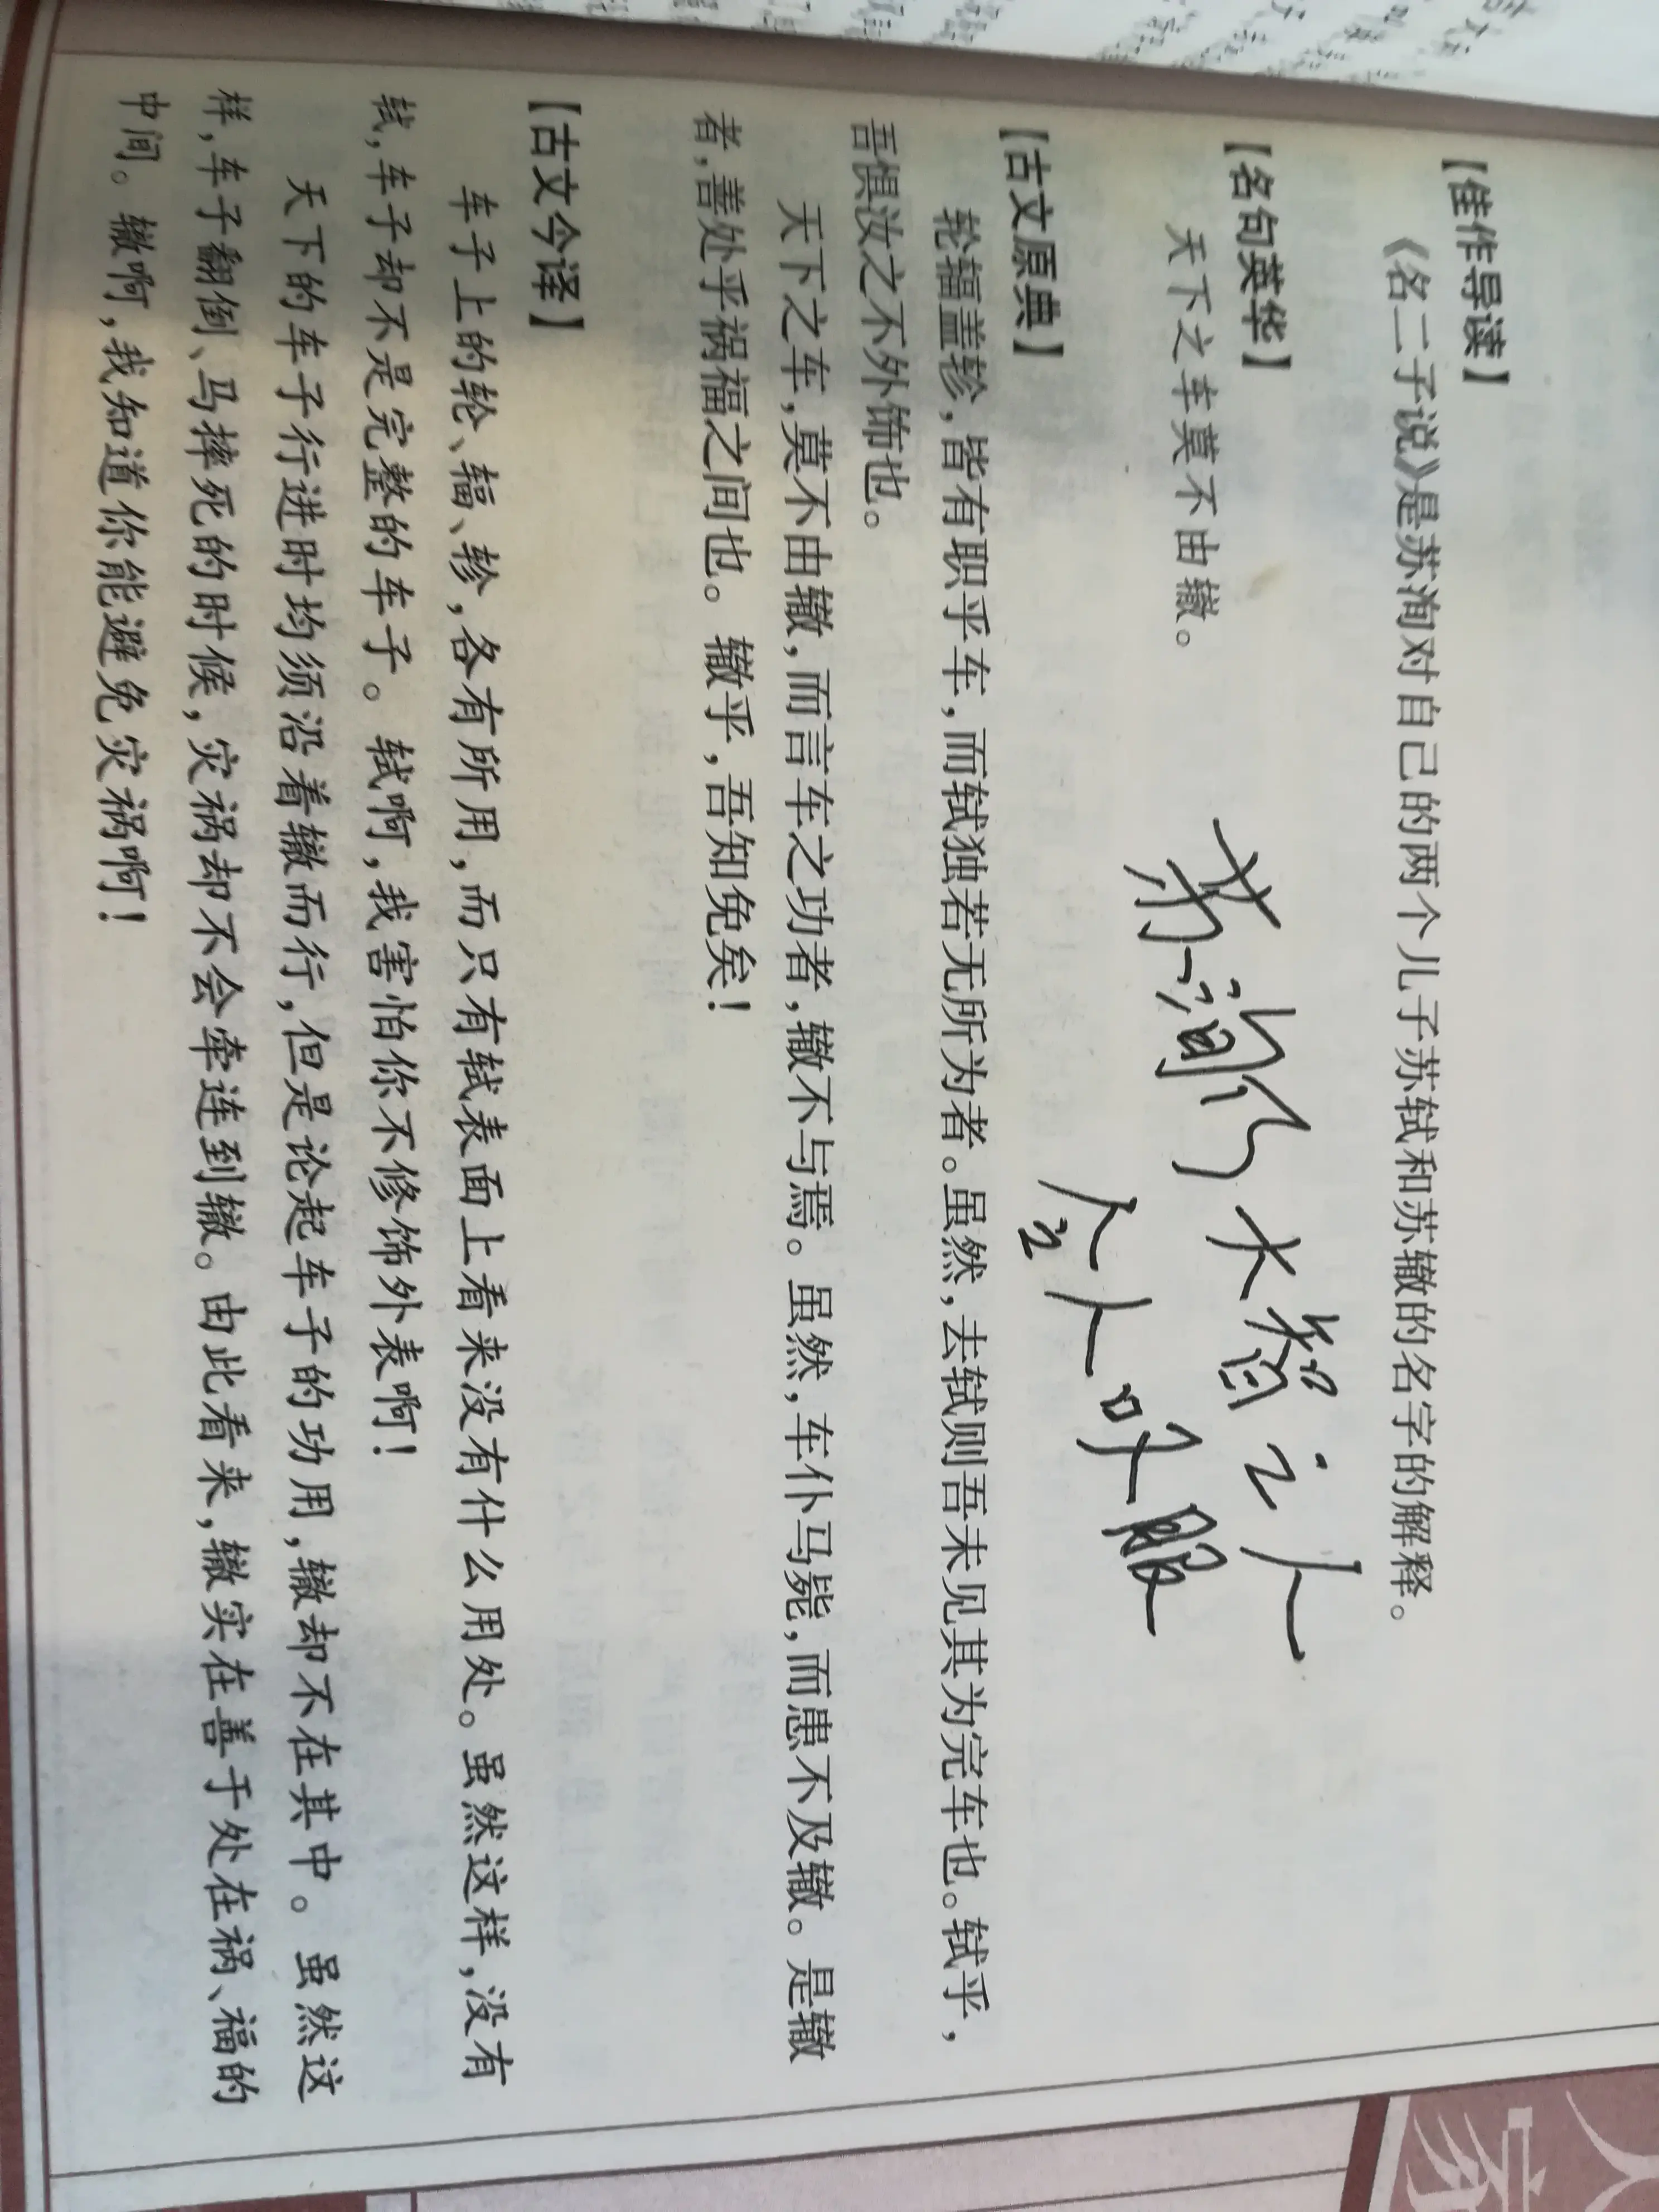 【佳作导读】
《名二子说》是苏洵对自己的两个儿子苏轼和苏辙的名字的解释。
【名句英华】
天下之车莫不由辙。
苏洵乃大智之人
令人叹服
【古文原典】
轮辐盖轸，皆有职乎车，而轼独若无所为者。虽然，去轼则吾未见其为完车也。轼乎，
吾惧汝之不外饰也。
天下之车，莫不由辙，而言车之功者，辙不与焉。虽然，车仆马毙，而患不及辙。是辙
者，善处乎祸福之间也。辙乎，吾知免矣！
【古文今译】
车子上的轮、辐、轸，各有所用，而只有轼表面上看来没有什么用处。虽然这样，没有
轼，车子却不是完整的车子。轼啊，我害怕你不修饰外表啊！
天下的车子行进时均须沿着辙而行，但是论起车子的功用，辙却不在其中。虽然这
样，车子翻倒、马摔死的时候，灾祸却不会牵连到辙。由此看来，辙实在善于处在祸、福的
中间。辙啊，我知道你能避免灾祸啊！